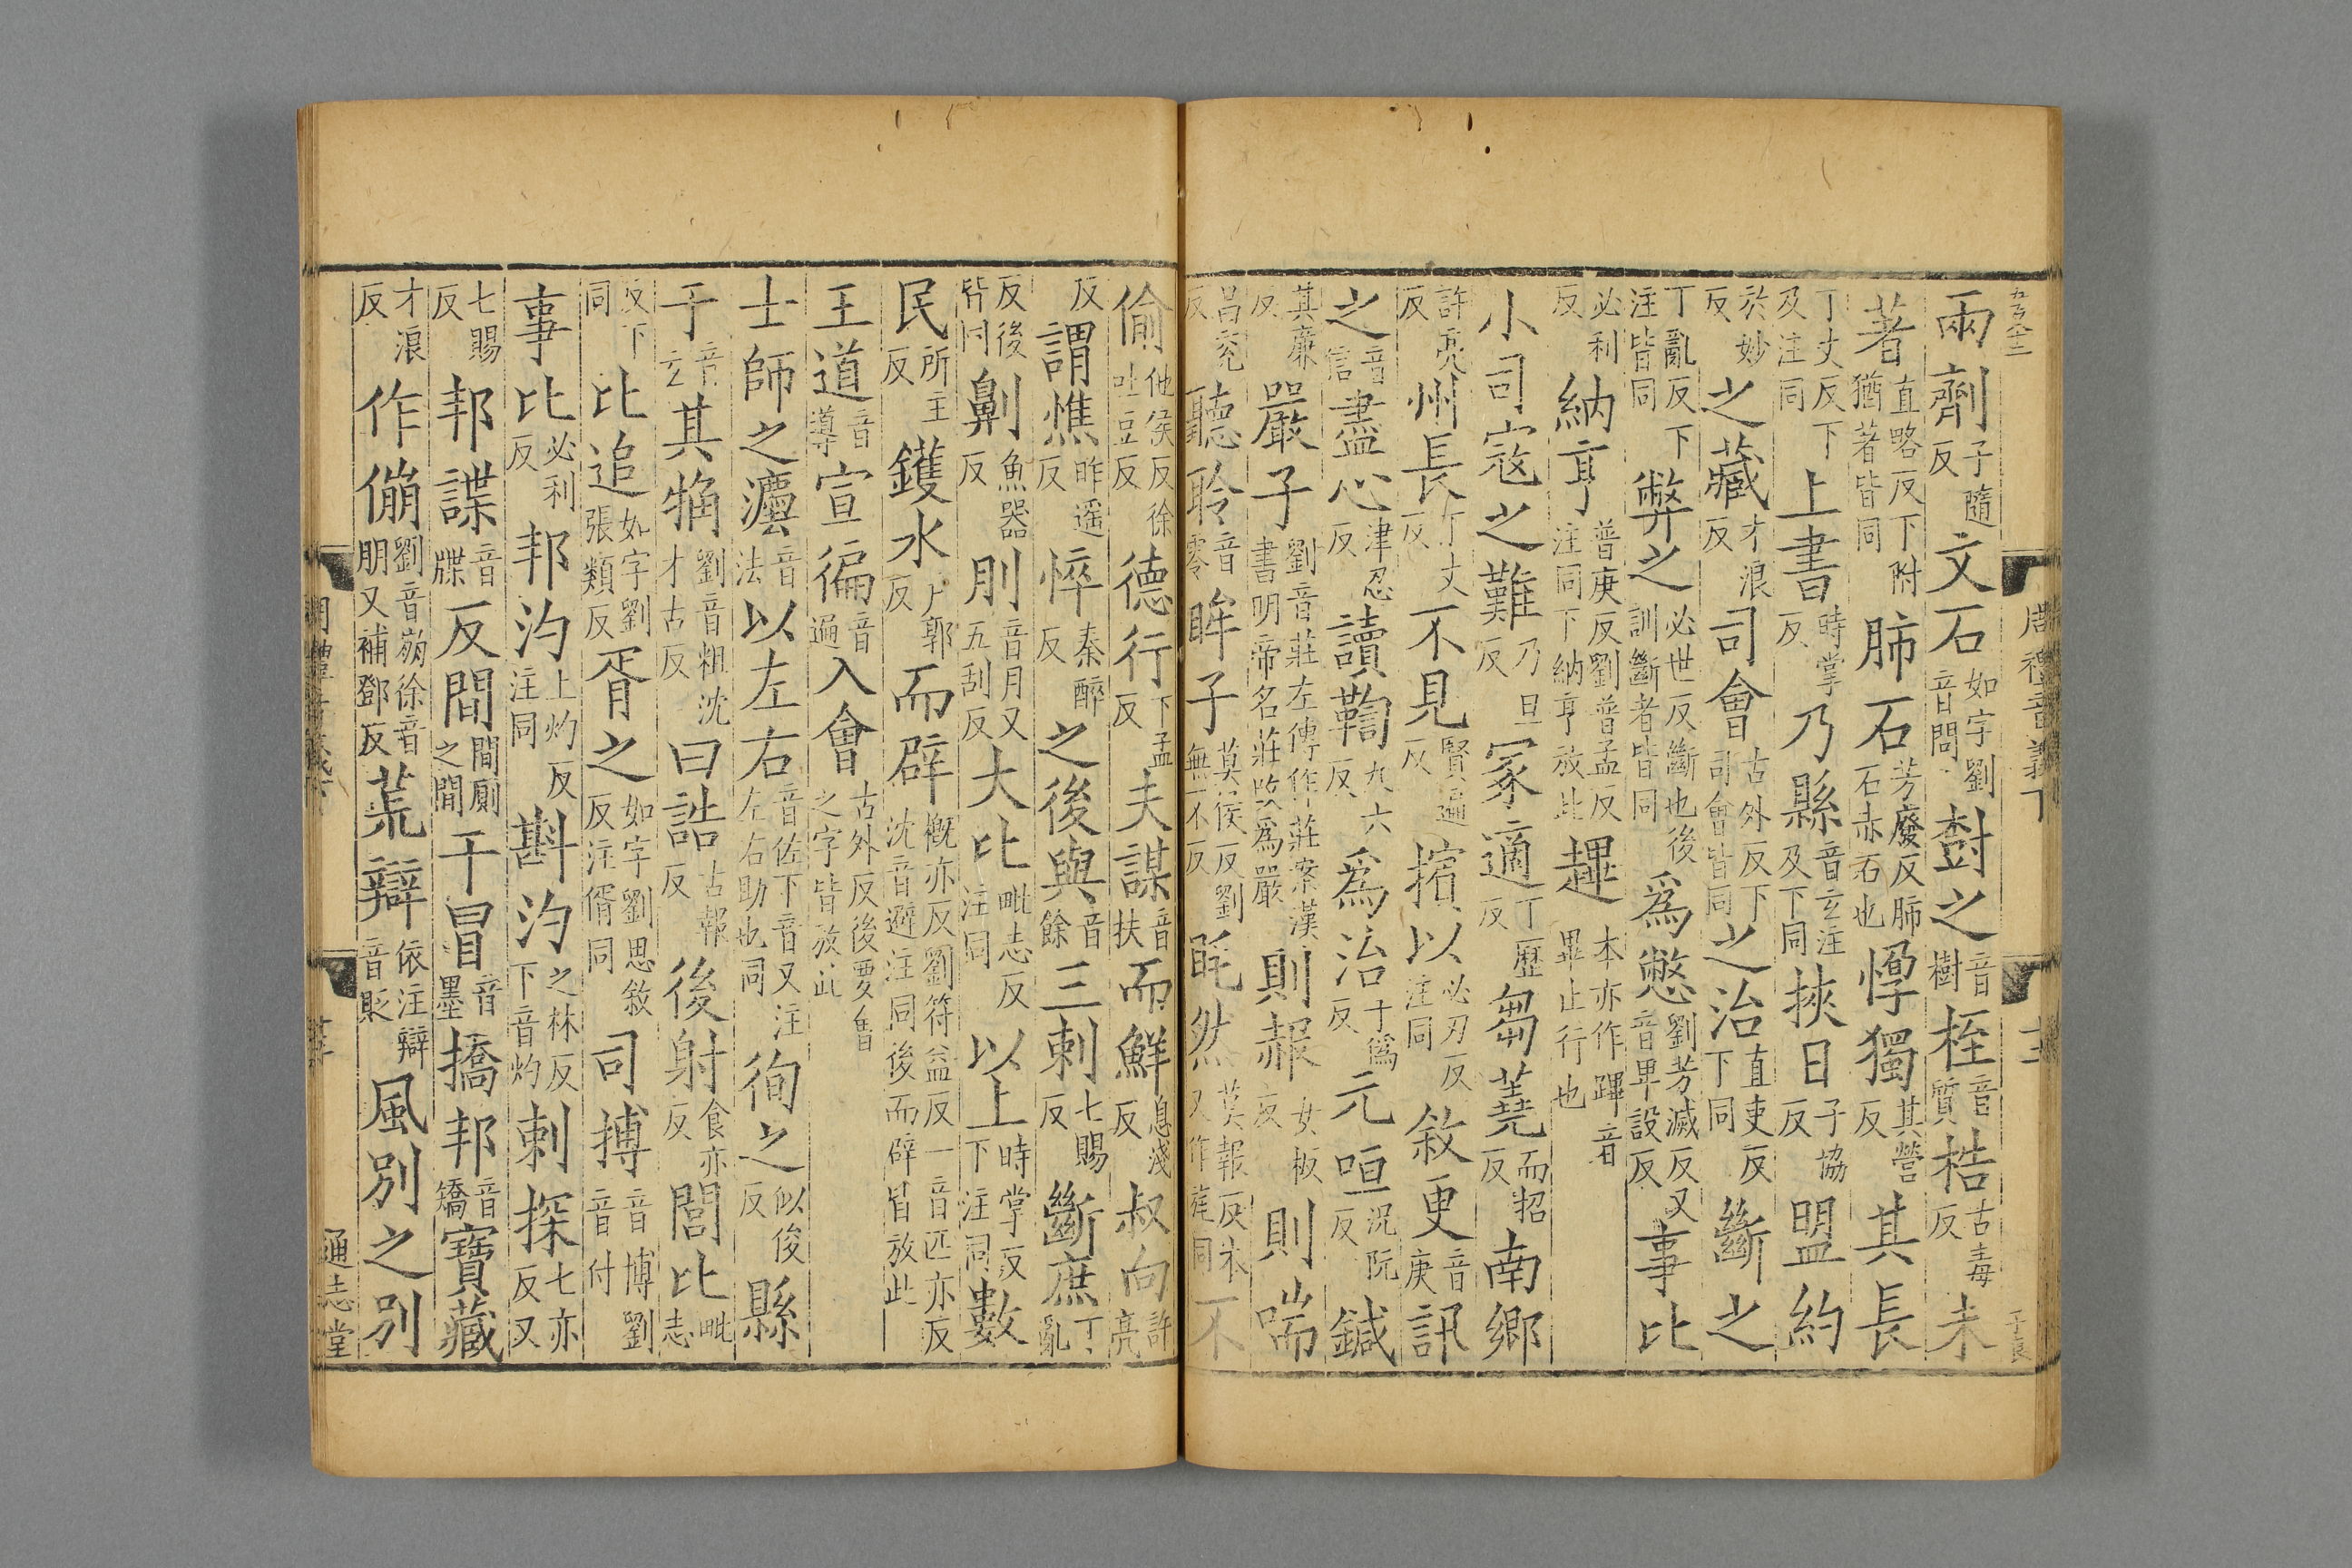 兩劑子隨反文石如字劉音問尌之音樹桎音質梏古毒反未
著直略反下附猶著皆同肺石芳廢反肺石赤石也惸獨其營反其長
丁丈反下及注同上書時掌反乃縣音玄注及下同挾日子協反盟約
於妙反之藏才浪反司會古外反下司會皆同之治直吏反下同斷之
丁亂反下注皆同弊之必世反斷也後訓斷者皆同爲憋劉芳滅反又音畢設反事比
必利反納亨普庚反劉普孟反注同下納亨放此趩本亦作蹕音畢止行也
小司寇之難乃旦反冢適丁歷反芻蕘而招反南鄉
許亮反州長丁丈反不見賢遍反擯以必刃反注同敘更音庚訊
之音信盡心津忍反讀鞫九六反爲治于僞反元咺況阮反鍼
其廉反嚴子劉音莊左傳作莊案漢書明帝名莊改爲嚴則赧女板反則喘
昌兖反聽聆音零眸子莫侯反劉無不反眊然莫報反本又作旄同不
偷他侯反徐吐豆反德行下孟反夫謀音扶而鮮息淺反叔向許亮
反謂憔昨遥反悴秦醉反之後與音餘三刺七賜反斷庶丁亂
反後皆同劓魚器反刖音月又五刮反大比毗志反注同以上時掌反下注同數
民所主反鑊水戶郭反而辟概亦反劉符益反一音匹亦反沈音避注同後而辟皆放此
王道音導宣徧音遍入會古外反後要會之字皆放此
士師之灋音法以左右音佐下音又注左右助也同徇之似俊反縣
于音玄其觕劉音粗沈才古反曰誥古報反後射食亦反閭比毗志
反下同比追如字劉張類反胥之如字劉思敘反注偦同司搏音博劉音付
事比必利反邦汋上灼反注同斟汋之林反下音灼刺探七亦反又
七賜反邦諜音牒反間間廁之間干冒音墨撟邦音矯寶藏
才浪反作傰劉音崩徐音朋又補鄧反荒辯依注辯音貶風別之別
周禮音義下
通志堂